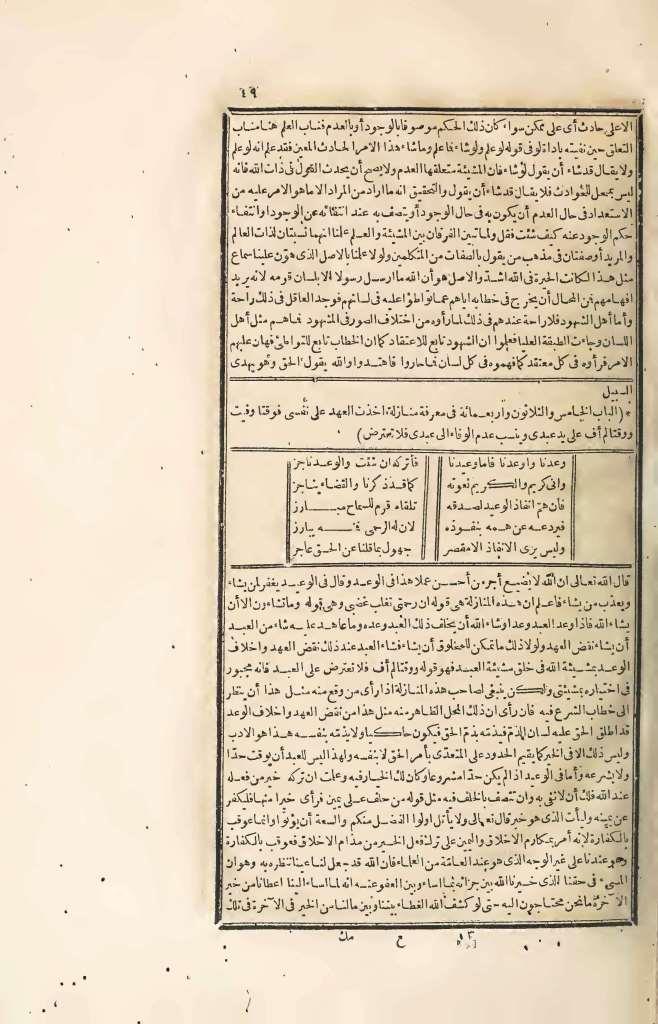 ٤٩
الاعلى حادث أى على ممكن سواء كان ذلك الحكم موصوفا بالوجود أو بالعدم فناب العلم هنا مناب
التعلق حين نفيته باداة لو فى قوله لو علم ولو شاء فاعلم وما شاء هذا الامر الحادث المعين فقد علم انه لو علم
ولا يقال قد شاء أن يقول لو شاء فان المشيئة متعلقها العدم ولا يصح أن يحدث القول فى ذات الله فانه
ليس بمحل للحوادث فلا يقال قد شاء أن يقول والتحقيق انه ما اراد من المراد الا ما هو الامر عليه من
الاستعداد فى حال العدم أن يكون به فى حال الوجود أو يتصف به عند انتفائه عن الوجود أو انتفاء
حكم الوجود عنه كيف شئت فقل ولما تبين الفرقان بين المشيئة والعلم علمنا انهما نسبتان لذات العالم
والمريد أو صفتان فى مذهب من يقول بالصفات من المتكلمين ولولا علمنا بالاصل الذى هوّن علينا سماع
مثل هذا لكانت الحيرة فى الله أشدّ والاصل هو أن الله ما ارسل رسولا الا بلسان قومه لانه يريد
افهامهم فمن المحال أن يخرج فى خطابه اياهم عما تواطؤا عليه فى لسانهم فوجد العاقل فى ذلك راحة
وأما أهل الشهود فلا راحة عندهم فى ذلك لما رأوه من اختلاف الصور فى الشهود فاهم مثل أهل
اللسان وجاءت الطبقة العليا فعلموا ان الشهود تابع للاعتقاد كما ان الخطاب تابع للتواطئ فهان عليهم
الامر فرأوه فى كل معتقد كما فهموه فى كل لسان فما حاروا فاهتدوا والله يقول الحق وهو يهدى
السبيل
* (الباب الخامس والثلاثون وأربعمائة فى معرفة منازلة اخذت العهد على نفسى فوقتا وفيت
ووقتا لم أف على يد عبدى وينسب عدم الوفاء الى عبدى فلا تعترض)
وعدنا وأوعدنا فاما وعيدنا فأتركه ان شئت والوعد ناجز
وانى كريم والكريم نعوته كما قد ذكرنا والقضاء يناجز
فان همّ انفاذ الوعيد لصدقه تلقاه قرم للسماح مبارز
فيردعه عن همه بنفوذه لان له الرحمى فمنه يبارز
وليس يرى الانفاذ الا مقصر جهول بما قلنا عن الحق عاجز
قال الله تعالى ان الله لا يضيع أجر من أحسن عملا هذا فى الوعد وقال فى الوعيد يغفر لمن يشاء
ويعذب من يشاء فاعلم ان هذه المنازلة هى قوله ان رحمتى تغلب غضبى وهى قوله وما تشاءون الا أن
يشاء الله فاذا وعد العبد وعدا وشاء الله أن يخالف ذلك العبد وعده وما عاهد عليه شاء من العبد
أن يشاء نقض العهد ولولا ذلك ما تمكن للمخلوق أن يشاء فشاء العبد عند ذلك نقض العهد واخلاف
الوعد بمشيئة الله فى خلق مشيئة العبد فهو قوله ووقتا لم أف فلا تعترض على العبد فانه مجبور
فى اختياره بمشيئتى ولكن ينبغى لصاحب هذه المنازلة اذا رأى من وقع منه مثل هذا أن ينظر
الى خطاب الشرع فيه فان رأى ان ذلك المحل الظاهر منه مثل هذا من نقض العهد واخلاف الوعد
قد اطلق الحق عليه لسان الذمّ فيذمّه بذمّ الحق فيكون حاكيا ولا يذمّه بنفسه هذا هو الادب
وليس ذلك الا فى الخير كما يقيم الحدود على المتعدّى بأمر الحق لا بنفسه ولهذا ليس للعبد أن يوقت حدّا
ولا يشرعه وأما فى الوعيد اذا لم يكن حدّا مشروعا وكان لك الخيار فيه وعلمت ان تركه خير من فعله
عند الله فلك أن لا تفى به وان تتصف بالخلف فيه مثل قوله من حلف على يمين فرأى خيرا منها فليكفر
عن يمينه وليأت الذى هو خير قال تعالى ولا يأتل اولوا الفضل منكم والسعة أن يؤتوا وانما عوقب
بالكفارة لانه أمر بمكارم الاخلاق واليمين على ترك فعل الخير من مذام الاخلاق فعوقب بالكفارة
وهو عندنا على غير الوجه الذى هو عند العامّة من العلماء فان الله قد جعل لنا عينا ننظر به وهو ان
المسىء فى حقنا الذى خيرنا الله بين جزائه بما اساء وبين العفو عنه انه لما اساء الينا اعطانا من خير
الآخرة ما نحن محتاجون اليه حتى لو كشف الله الغطاء بيننا وبين ما لنا من الخير فى الآخرة فى تلك
١٣ ع مك